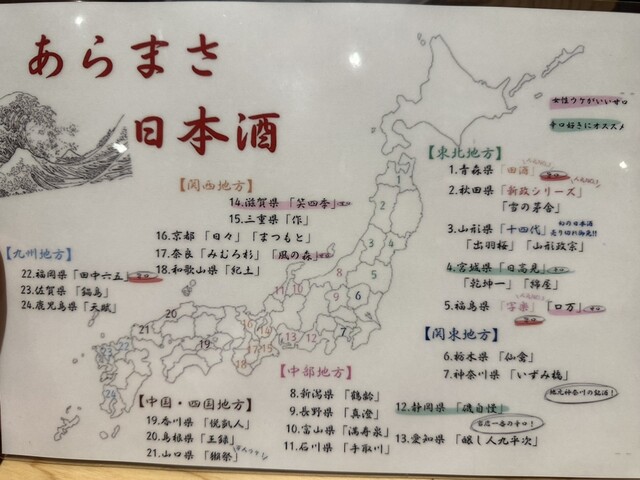 あらまさ
日本酒
女性ウケがいい甘口
辛口好きにオススメ
【東北地方】
1.青森県「田酒」
2.秋田県「新政シリーズ」
「雪の茅舎」
3.山形県「十四代」
幻の日本酒
売り切れ御免!!
「出羽桜」「山形政宗」
4.宮城県「日高見」
「乾坤一」「綿屋」
5.福島県「写楽」「ロ万」
【関東地方】
6.栃木県「仙禽」
7.神奈川県「いづみ橋」
地元神奈川の銘酒!
12.静岡県「磯自慢」
当店一番の辛口!
13.愛知県「醸し人九平次」
【関西地方】
14.滋賀県「笑四季」
15.三重県「作」
16.京都「日々」「まつもと」
17.奈良「みむろ杉」「風の森」
18.和歌山県「紀土」
【九州地方】
22.福岡県「田中六五」
23.佐賀県「鍋島」
24.鹿児島県「天賦」
【中部地方】
8.新潟県「鶴齢」
9.長野県「真澄」
10.富山県「満寿泉」
11.石川県「手取川」
【中国・四国地方】
19.香川県「悦凱人」
20.島根県「王録」
21.山口県「獺祭」
1
2
3
4
5
6
7
8
9
10
11
12
13
14
15
16
17
18
19
20
21